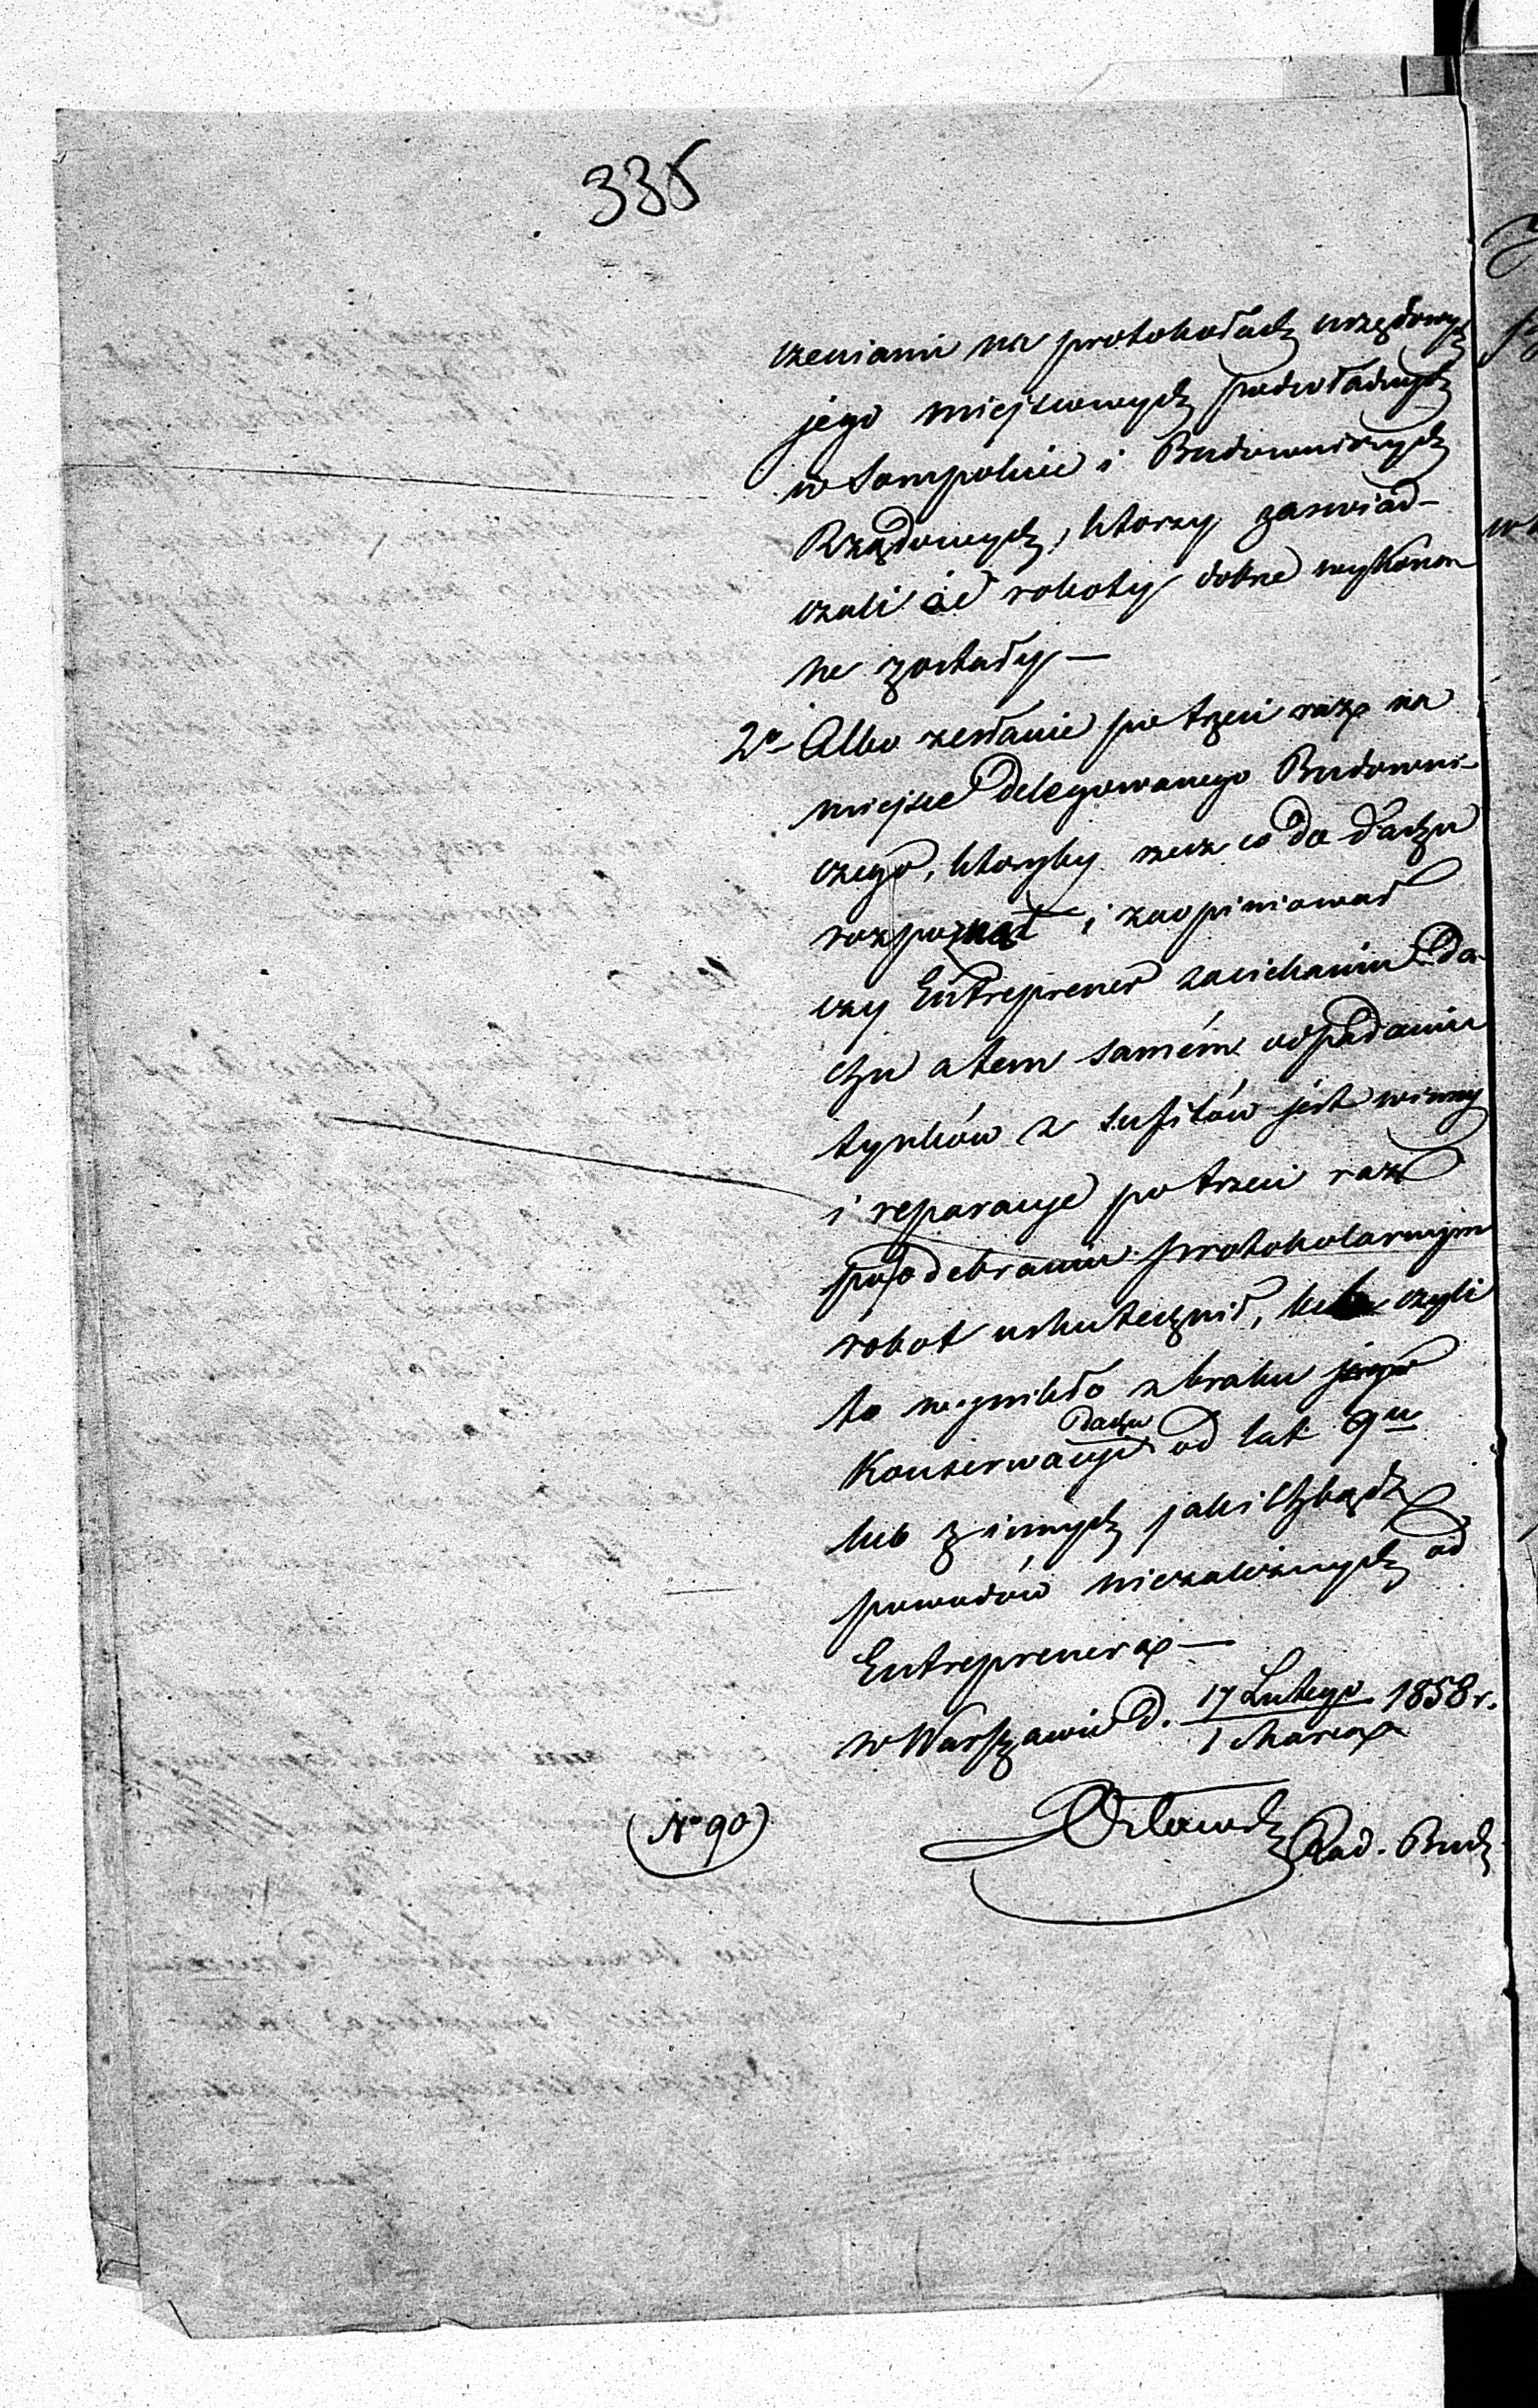 335
czeniami na protokołach urzędowych
jego miejscowych podwładnych
w Sompolnie i Budowniczych
Rządowych, ktorzy zaswiad-
czali że roboty dobre wykona
ne zostały —
2o Albo zesłanie po trzeci raz na
miejsce delegowanego Budowni-
czego, ktoryby rzecz co do dachu
rozpoznał i zaopiniował
czy Entreprener zaciekaniu da-
chu a tem samém odpadaniu
tynków z sufitów jest winny
i reparacyę po trzeci raz
po odebraniu protokolarnym
robot uskutecznił, czyli
to wynikło z braku
Konserwacyi dachu od lat 9u
lub z innych jakichbądz
powodów niezależnych od
Entreprenera —
w Warszawie d. 17 Lutego / 1 Marca 1858 r.
(No 90)
Rad. Bud.